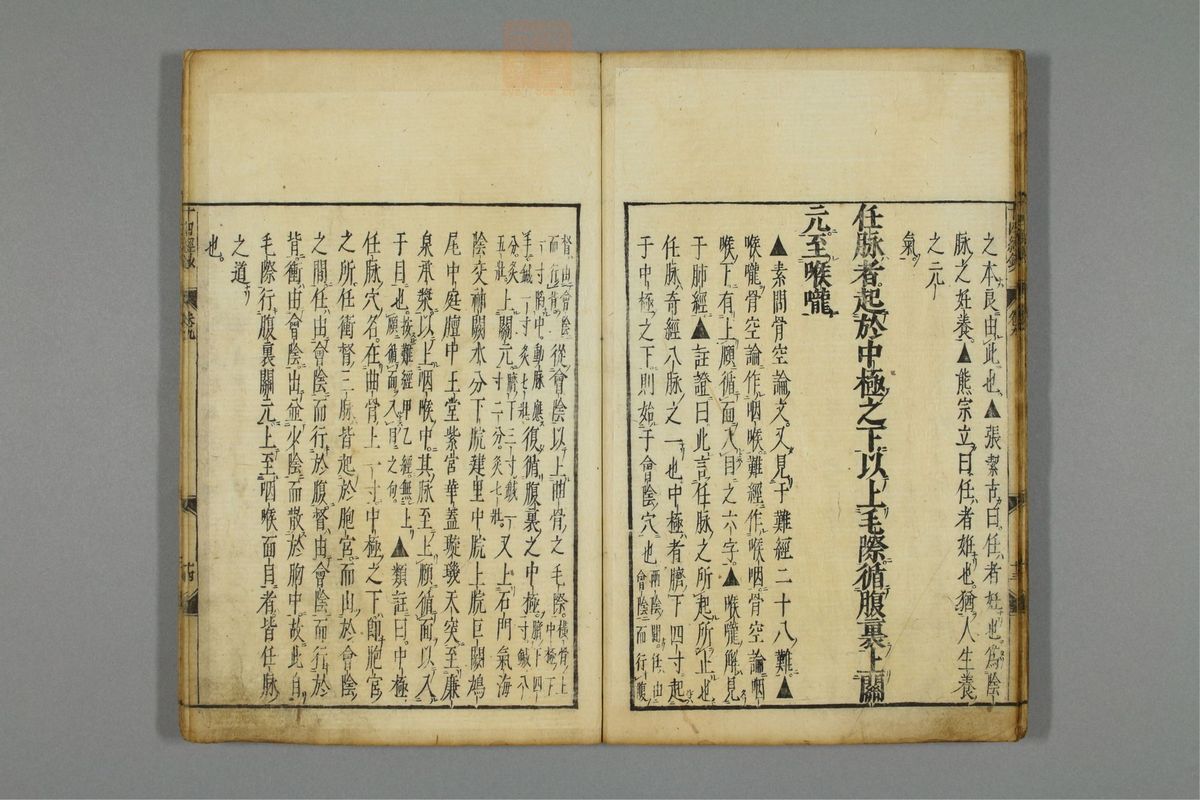 之本良由此也▲張絜古曰任者妊也爲陰
脉之妊養▲熊宗立曰任者妊也猶人生養
之元
氣
任脉者起於中極之下以上毛際循腹裏上關
元至喉嚨
▲素問骨空論文又見于難經二十八難▲
喉嚨骨空論作咽喉難經作喉咽骨空論咽
喉下有上頤循面入目之六字▲喉嚨解見
于肺經▲註證曰此言任脉之所起所止也
任脉奇經八脉之一也中極者臍下四寸起
于中極之下則始于會陰穴也兩陰間任由會陰而行腹
督由會陰而行背從會陰以上曲骨之毛際橫骨上中極下
一寸陷中動脉應復循腹裏之中極臍下四
五壯上關元臍下三寸鍼一寸二分灸七壯又上石門氣海
陰交神闕水分下脘建里中脘上脘巨闕鳩
尾中庭膻中玉堂紫宮華蓋璇璣天突至廉
泉承漿以上咽喉中其脉至上頤循面以入
于目也按難經甲乙經無上頤循面入目之句▲類註曰中極
任脉穴名在曲骨上一寸中極之下即胞宮
之所任衝督三脉皆起於胞宮而出於會陰
之間任由會陰而行於腹督由會陰而行於
背衝由會陰出並少陰而散於胸中故此自
毛際行腹裏關元上至咽喉面目者皆任脉
之道
也
十四經
卷九
十四